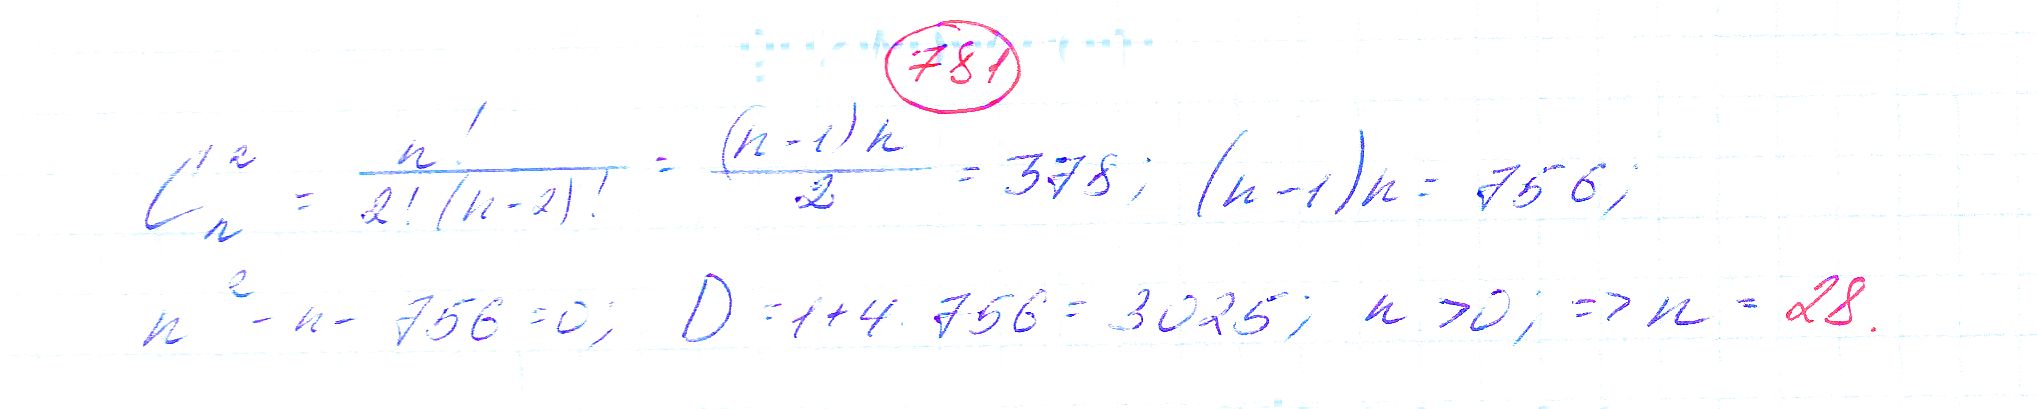 781
C_n^2 = n! / 2!(n-2)! = (n-1)n / 2 = 378; (n-1)n = 756;
n^2 - n - 756 = 0; D = 1+4·756 = 3025; n > 0; => n = 28.